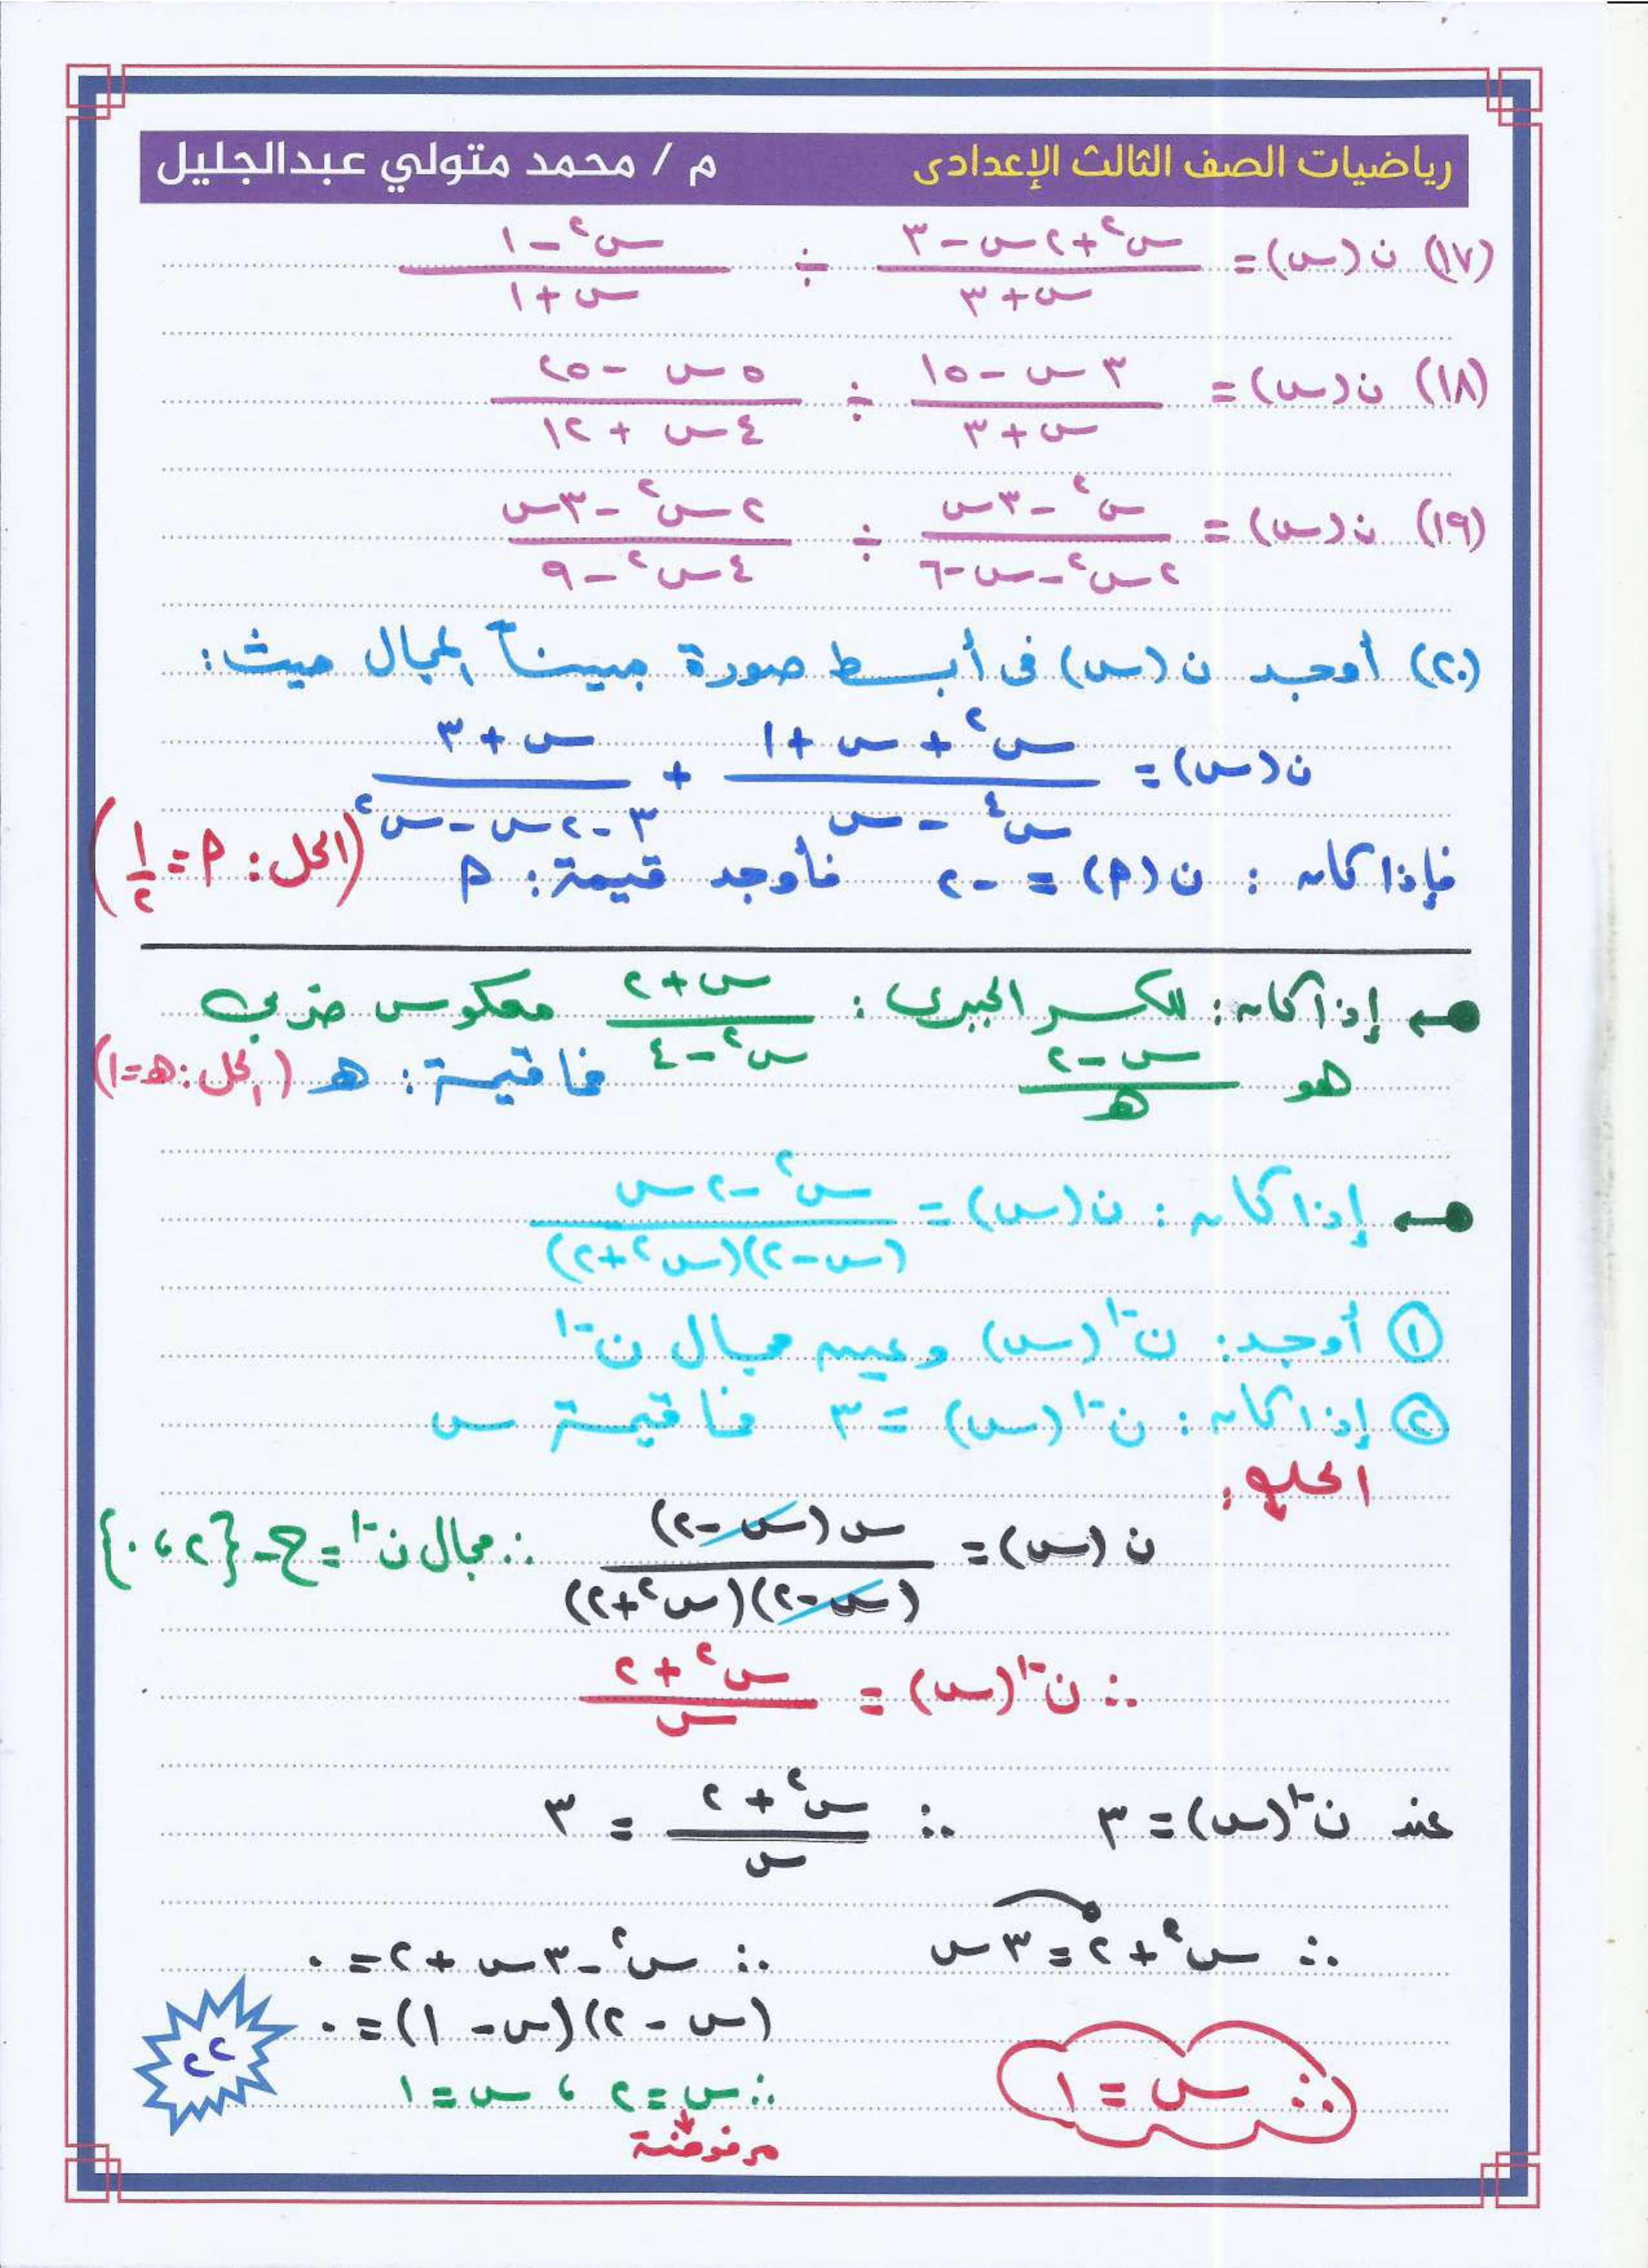 رياضيات الصف الثالث الإعدادى م / محمد متولي عبدالجليل
(١٧) ن(س) = (س² + ٢س - ٣)/(س + ٣) ÷ (س² - ١)/(س + ١)
(١٨) ن(س) = (٣س - ١٥)/(س + ٣) ÷ (٥س - ٢٥)/(٤س + ١٢)
(١٩) ن(س) = (س² - ٣س)/(٢س² - س - ٦) ÷ (٢س² - ٣س)/(٤س² - ٩)
(٢٠) أوجد ن(س) فى أبسط صورة مبيناً المجال حيث:
ن(س) = (س² + س + ١)/(س⁴ - س) + (س + ٣)/(٣ - ٢س - س²)
فإذا كان : ن(م) = -٢ فأوجد قيمة : م (الحل : م = ١/٢)
إذا كان : للكسر الجبرى : (س + ٢)/(س² - ٤) معكوس ضربى
هو (س - ٢)/ه فما قيمة : ه (الحل : ه = ١)
إذا كان : ن(س) = (س² - ٢س)/((س - ٢)(س² + ٢))
① أوجد : ن⁻¹(س) وعين مجال ن⁻¹
② إذا كان : ن⁻¹(س) = ٣ فما قيمة س
الحل :
ن(س) = س(س - ٢)/((س - ٢)(س² + ٢)) ∴ مجال ن⁻¹ = ح - {٢ ، ٠}
∴ ن⁻¹(س) = (س² + ٢)/س
عند ن⁻¹(س) = ٣ ∴ (س² + ٢)/س = ٣
∴ س² + ٢ = ٣س ∴ س² - ٣س + ٢ = ٠
(س - ٢)(س - ١) = ٠
∴ س = ٢ ، س = ١
مرفوضة
∴ س = ١
٢٢